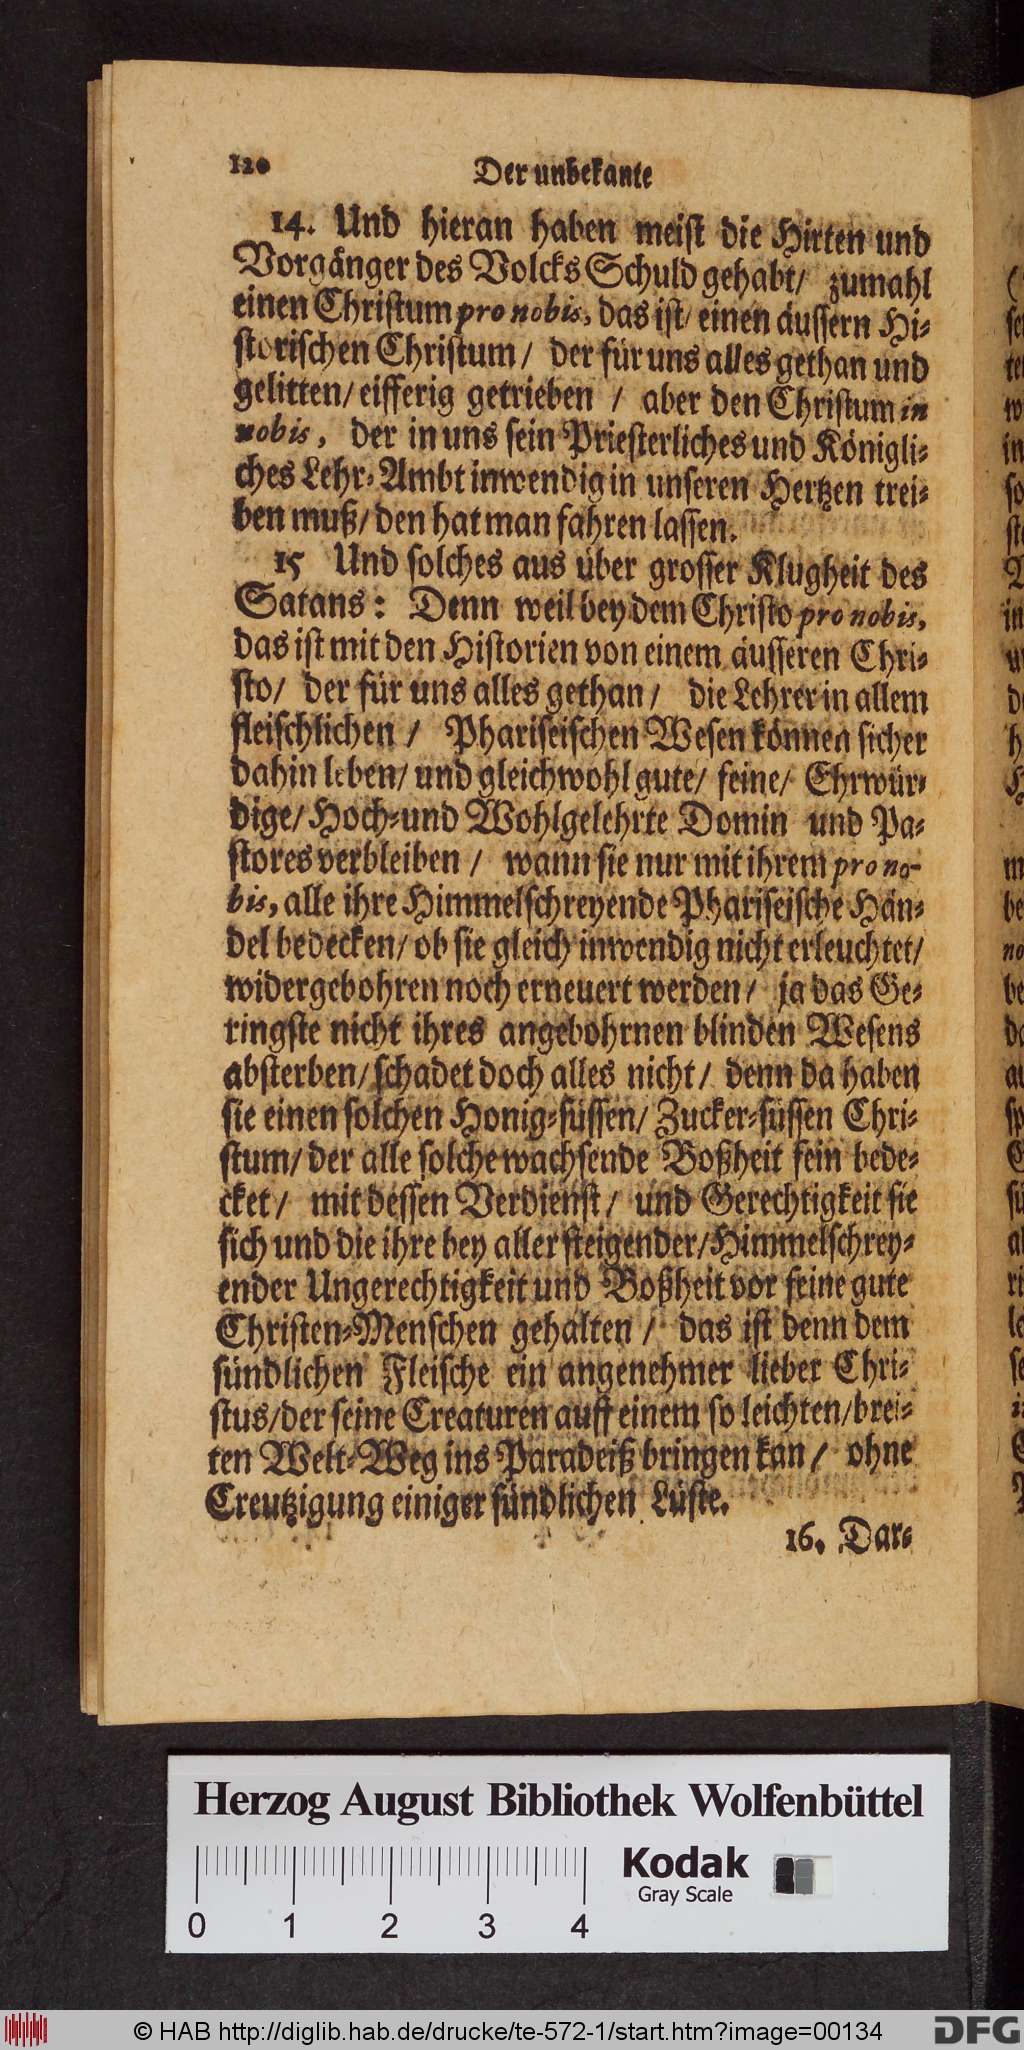 120
Der unbekante
14. Und hieran haben meist die Hirten und
Vorgänger des Volcks Schuld gehabt/ zumahl
einen Christum pro nobis, das ist/ einen äussern Hi-
storischen Christum/ der für uns alles gethan und
gelitten/ eifferig getrieben / aber den Christum in
nobis, der in uns sein Priesterliches und Königli-
ches Lehr-Ambt inwendig in unseren Hertzen trei-
ben muß/ den hat man fahren lassen.
15 Und solches aus über grosser Klugheit des
Satans: Denn weil bey dem Christo pro nobis,
das ist mit den Historien von einem äusseren Chri-
sto/ der für uns alles gethan/ die Lehrer in allem
fleischlichen / Phariseischen Wesen können sicher
dahin leben/ und gleichwohl gute/ feine/ Ehrwür-
dige/ Hoch-und Wohlgelehrte Domin und Pa-
stores verbleiben / wann sie nur mit ihrem pro no-
bis, alle ihre Himmelschreyende Phariseische Hän-
del bedecken/ ob sie gleich inwendig nicht erleuchtet/
widergebohren noch erneuert werden/ ja das Ge-
ringste nicht ihres angebohrnen blinden Wesens
absterben/ schadet doch alles nicht/ denn da haben
sie einen solchen Honig-süssen/ Zucker-süssen Chri-
stum/ der alle solche wachsende Boßheit fein bede-
cket/ mit dessen Verdienst/ und Gerechtigkeit sie
sich und die ihre bey aller steigender/ Himmelschrey-
ender Ungerechtigkeit und Boßheit vor feine gute
Christen-Menschen gehalten / das ist denn dem
sündlichen Fleische ein angenehmer lieber Chri-
stus/ der seine Creaturen auff einem so leichten/ brei-
ten Welt-Weg ins Paradeiß bringen kan/ ohne
Creutzigung einiger sündlichen Lüste.
16. Dar-
Herzog August Bibliothek Wolfenbüttel
Kodak
Gray Scale
0 1 2 3 4
© HAB http://diglib.hab.de/drucke/te-572-1/start.htm?image=00134
DFG